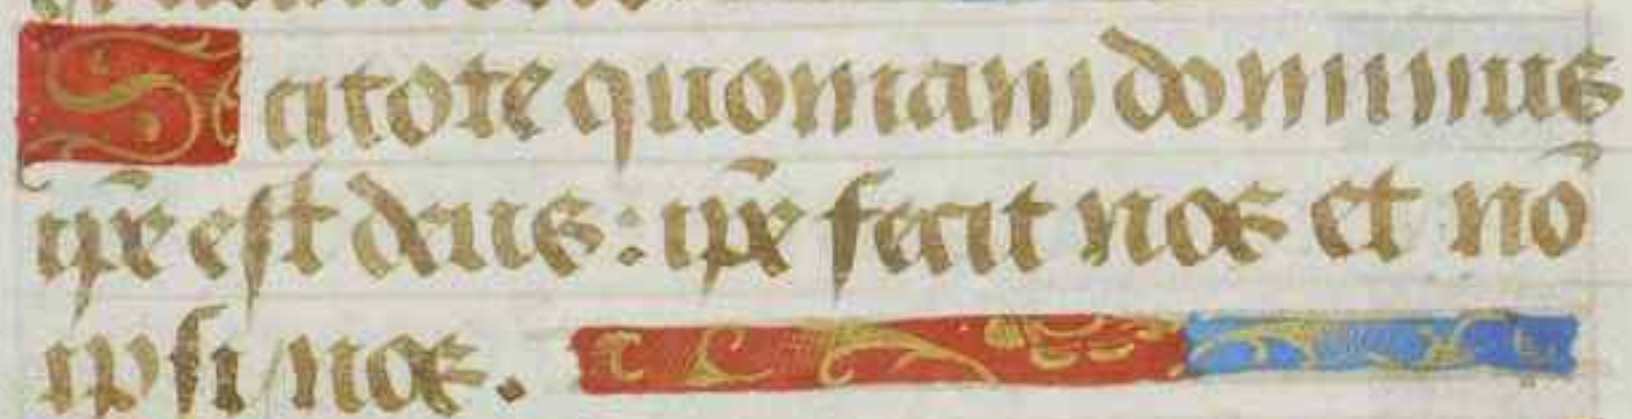 Scitote quoniam dominus
ip̄e est deus: ip̄e fecit nos et nō
ipsi nos.